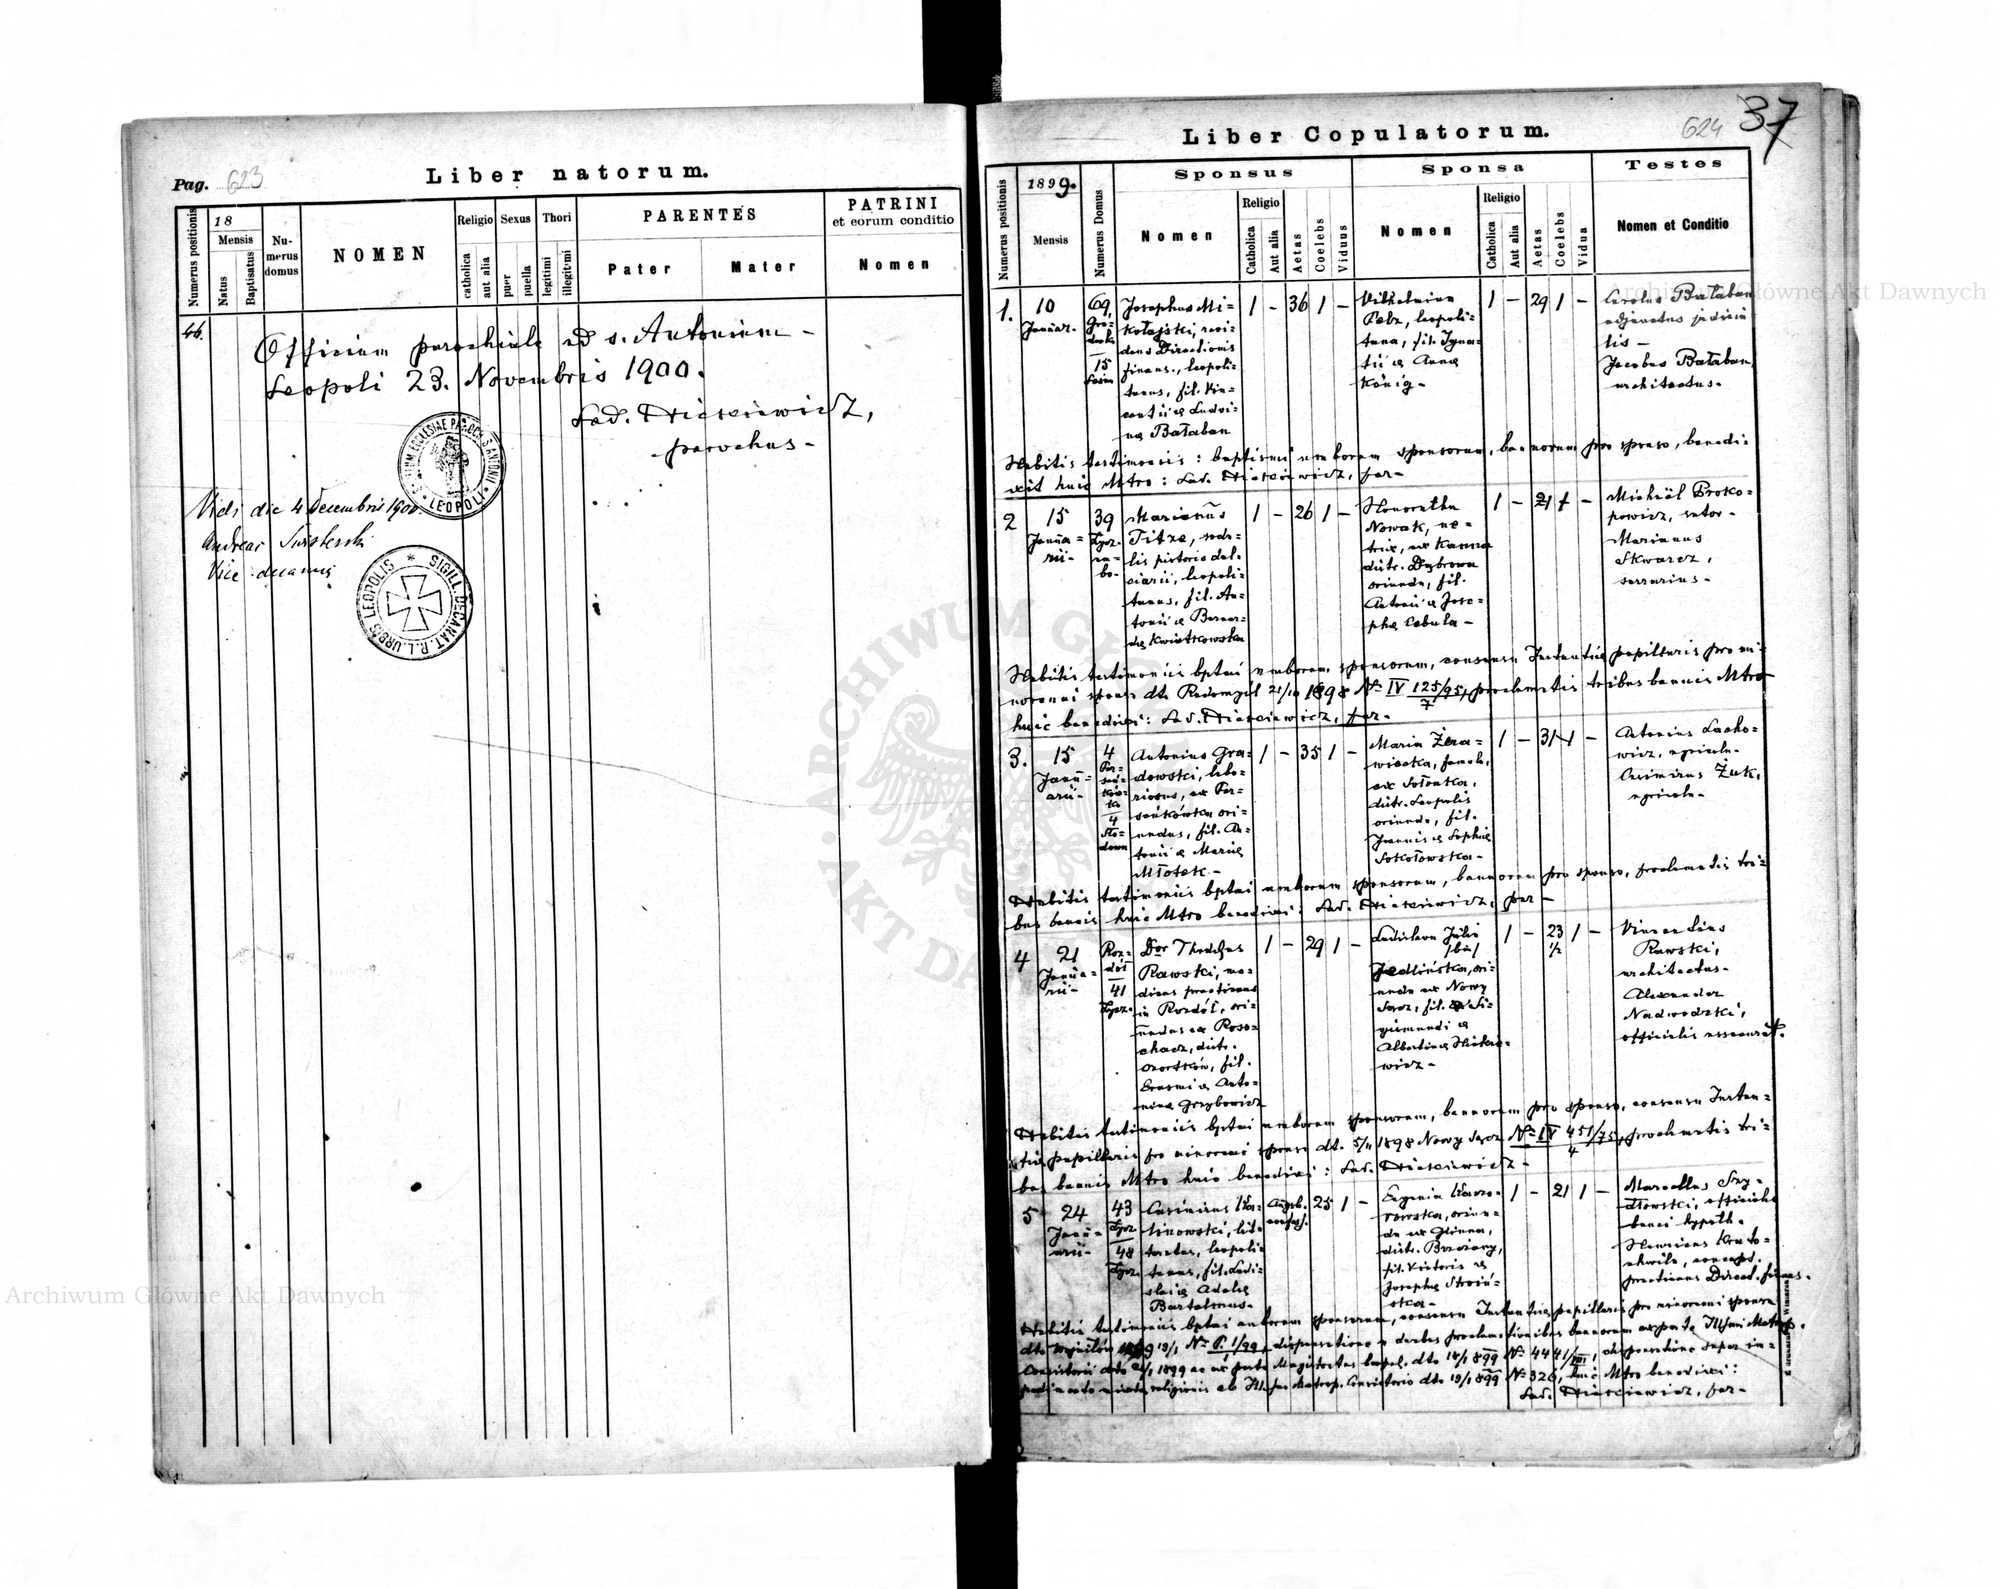 Pag. 623
Liber natorum.
Numerus positionis
18
Mensis
Natus
Baptisatus
Nu-
merus
domus
NOMEN
Religio
catholica
aut alia
Sexus
puer
puella
Thori
legitimi
illegitimi
PARENTES
Pater
Mater
PATRINI
et eorum conditio
Nomen
46.
Officium parochiale ad s. Antonium -
Leopoli 23. Novembris 1900.
Lad.
parochus -
LEOPOLI
Vidi die 4 Decembris 1900.
Andreas
Vice-decanus
SIGILL. DECANAT. R. L. URBIS LEOPOLIS
624 37
Liber Copulatorum.
Numerus positionis
1899.
Mensis
Numerus Domus
Sponsus
Nomen
Religio
Catholica
Aut alia
Aetas
Coelebs
Viduus
Sponsa
Nomen
Religio
Catholica
Aut alia
Aetas
Coelebs
Vidua
Testes
Nomen et Conditio
1.
10
Januar.
69,
Gro-
decka
15
Josephus Mi-
kołajski, revi-
dens Directionis
finans., leopoli-
tanus, fil. Vin-
centii & Ludvi-
na Bałaban
1 - 36 1 -
Wilhelmina
Pelz, leopoli-
tana, fil. Igna-
tii & Anna
König -
1 - 29 1 -
Carolus Bałaban
adjunctus judicia-
lis -
Jacobus Bałaban,
architectus -
Habitis testimoniis: baptismi amborum sponsorum, bannorum pro sponso, benedi-
xit huic Mtro: Lad.
2
15
Janua-
rii -
39
Łycz-
a-
bo-
Marianus
Titze, soda-
lis pistoris dul-
ciarii, leopoli-
tanus, fil. An-
tonii & Bernar-
da Kwiatkowska
1 - 26 1 -
Honoratha
Nowak,
distr. Dąbrowa
oriunda, fil.
Antonii & Jose-
pha Cebula -
1 - 21 1 -
Michaël Proko-
powicz, sutor -
Marianus
Skwarcz,
serrarius -
Habitis testimoniis bptmi amborum sponsorum, consensu Instantiæ pupillaris pro mi-
norenni sponsa dto Radomyśl 21/10 1898 No IV 125/95/7, proclamatis tribus bannis Mtro
huic benedixi: Lad.
3.
15
Janu-
arii -
4
Per-
sen-
ków-
ka
4
Antonius Gra-
dowski, labo-
riosus, ex Per-
senkówka ori-
undus, fil. An-
tonii & Mariæ
Młotek -
1 - 35 1 -
Maria Żera-
wiecka, famula,
ex Sołonka,
distr. Leopolis
oriunda, fil.
Joannis & Sophiæ
Sokołowska -
1 - 31 1 -
Antonius Lacho-
wicz, agricola -
Casimirus Żuk,
agricola -
Habitis testimoniis bptmi amborum sponsorum, bannorum pro sponso, proclamatis tri-
bus bannis huic Mtro benedixi: Lad.
4
21
Janua-
rii -
Roz-
dół
41
Łycz.
Dor Thaddæus
Rawski, me-
dicus practicans
in Rozdół, ori-
undus ex Roso-
chacz, distr.
Czortków, fil.
Erasmi & Anto-
nina Grzybowicz
1 - 29 1 -
Ladislava Julia
/bin/
Jedlińska, ori-
unda ex Nowy
Sącz, fil. Si-
gismundi &
Albertina
wicz -
1 - 23 1/2 1 -
Vincentius
Rawski,
architectus -
Alexander
Nadwodzki,
officialis assecurat.
Habitis testimoniis bptmi amborum sponsorum, bannorum pro sponso, consensu Instan-
tiæ pupillaris pro minorenni sponsa dt. 5/11 1898 Nowy Sącz No IV 451/75/4, proclamatis tri-
bus bannis Mtro huic benedixi: Lad.
5
24
Janu-
arii -
43
Łycz.
48
Łycz.
Casimirus Ka-
linowski, lit-
teratus, leopoli-
tanus, fil. Ladi-
slai & Adela
Bartelmus -
Augsb.
confess.
25 1 -
Eugenia Kawo-
rowska, oriun-
da ex Glinna,
distr. Brzeżany,
fil. Victoris &
Josepha Stroiń-
ska -
1 - 21 1 -
Marcellus Szy-
dłowski, officialis
banci hypoth. -
Henricus Krato-
chwila, concept.
practicans Direct. finans.
Habitis testimoniis bptmi amborum sponsorum, consensu Instantiæ pupillaris pro minorenni sponsa
dto 1899 19/1 No P. 1/99, dispensatione a duabus proclamationibus bannorum ex parte Illsmi Metrop.
Consistorii dto 1899 ac ex parte Magistratus leopol. dto 18/1 899 No 4441/III, dispensatione super im-
pedimento mixta religionis ab Illsmo Metrop. Consistorio dto 19/1 899 No 326, huic Mtro benedixi:
Lad.
Archiwum Główne Akt Dawnych
Archiwum Główne Akt Dawnych
ARCHIWUM GŁÓWNE AKT DAWNYCH